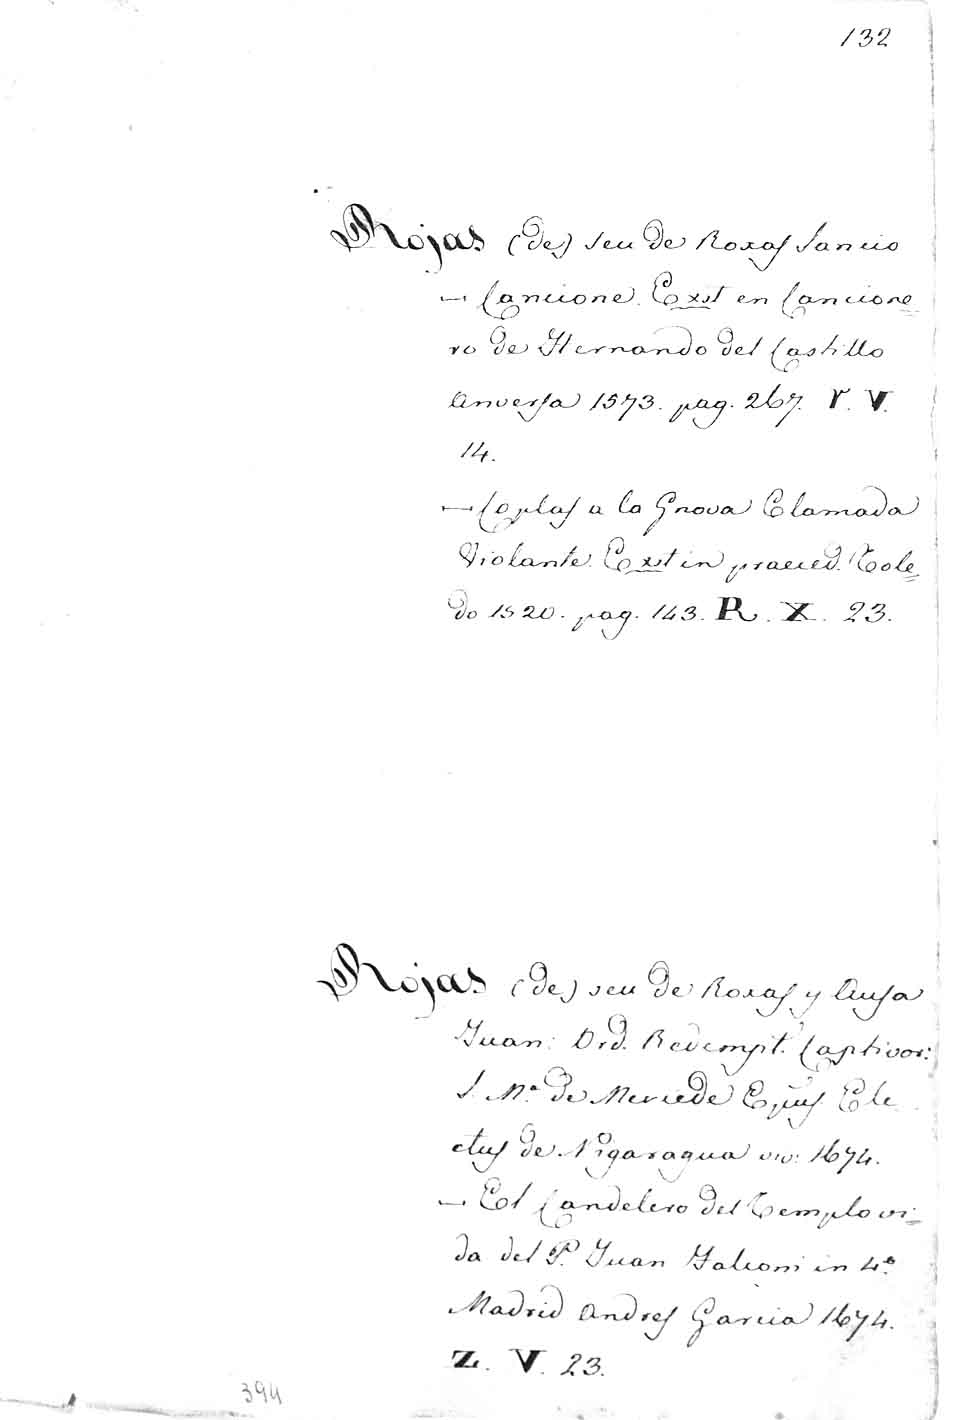 132
Rojas (de) seu de Roxas Sancio
— Cancione. Exst en Cancione=
ro de Hernando del Castillo
Anversa 1573. pag. 267. r. V.
14.
— Coplas a la Gnova Clamada
Violante. Exst in praeced. Tole=
do 1520. pag. 143. R. X. 23.
Rojas (de) seu de Roxas y Ausa
Juan: Ord. Redempt. Captivor:
S. Mª de Mercede Epus Ele
ctus de Nigaragua viv: 1674.
— El Candelero del Templo vi=
da del P. Juan Falconi in 4º
Madrid Andres Garcia 1674.
Z. V. 23.
394